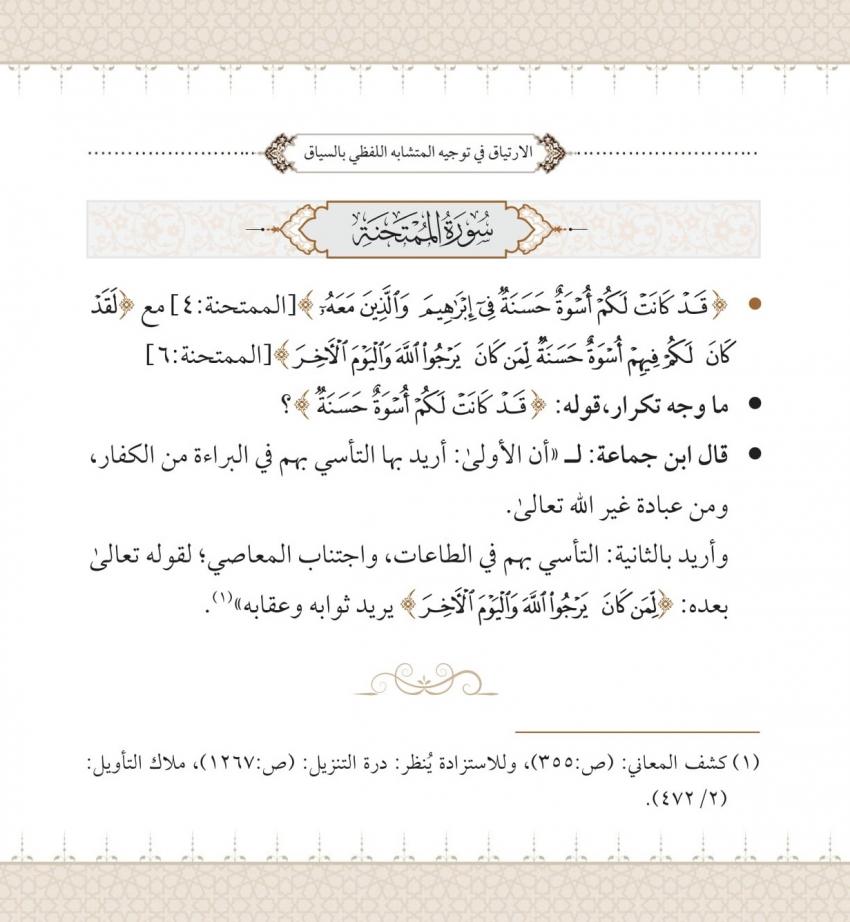 الارتياق في توجيه المتشابه اللفظي بالسياق
سُورَةُ المُمْتَحَنَةِ
• ﴿قَدْ كَانَتْ لَكُمْ أُسْوَةٌ حَسَنَةٌ فِي إِبْرَٰهِيمَ وَالَّذِينَ مَعَهُۥ﴾ [الممتحنة:٤] مع ﴿لَقَدْ
كَانَ لَكُمْ فِيهِمْ أُسْوَةٌ حَسَنَةٌ لِّمَن كَانَ يَرْجُوا۟ اللَّهَ وَالْيَوْمَ الْآخِرَ﴾ [الممتحنة:٦]
• ما وجه تكرار،قوله: ﴿قَدْ كَانَتْ لَكُمْ أُسْوَةٌ حَسَنَةٌ﴾؟
• قال ابن جماعة: لـ «أن الأولىٰ: أريد بها التأسي بهم في البراءة من الكفار،
ومن عبادة غير الله تعالىٰ.
وأريد بالثانية: التأسي بهم في الطاعات، واجتناب المعاصي؛ لقوله تعالىٰ
بعده: ﴿لِّمَن كَانَ يَرْجُوا۟ اللَّهَ وَالْيَوْمَ الْآخِرَ﴾ يريد ثوابه وعقابه»(١).
(١) كشف المعاني: (ص:٣٥٥)، وللاستزادة يُنظر: درة التنزيل: (ص:١٢٦٧)، ملاك التأويل:
(٢/ ٤٧٢).